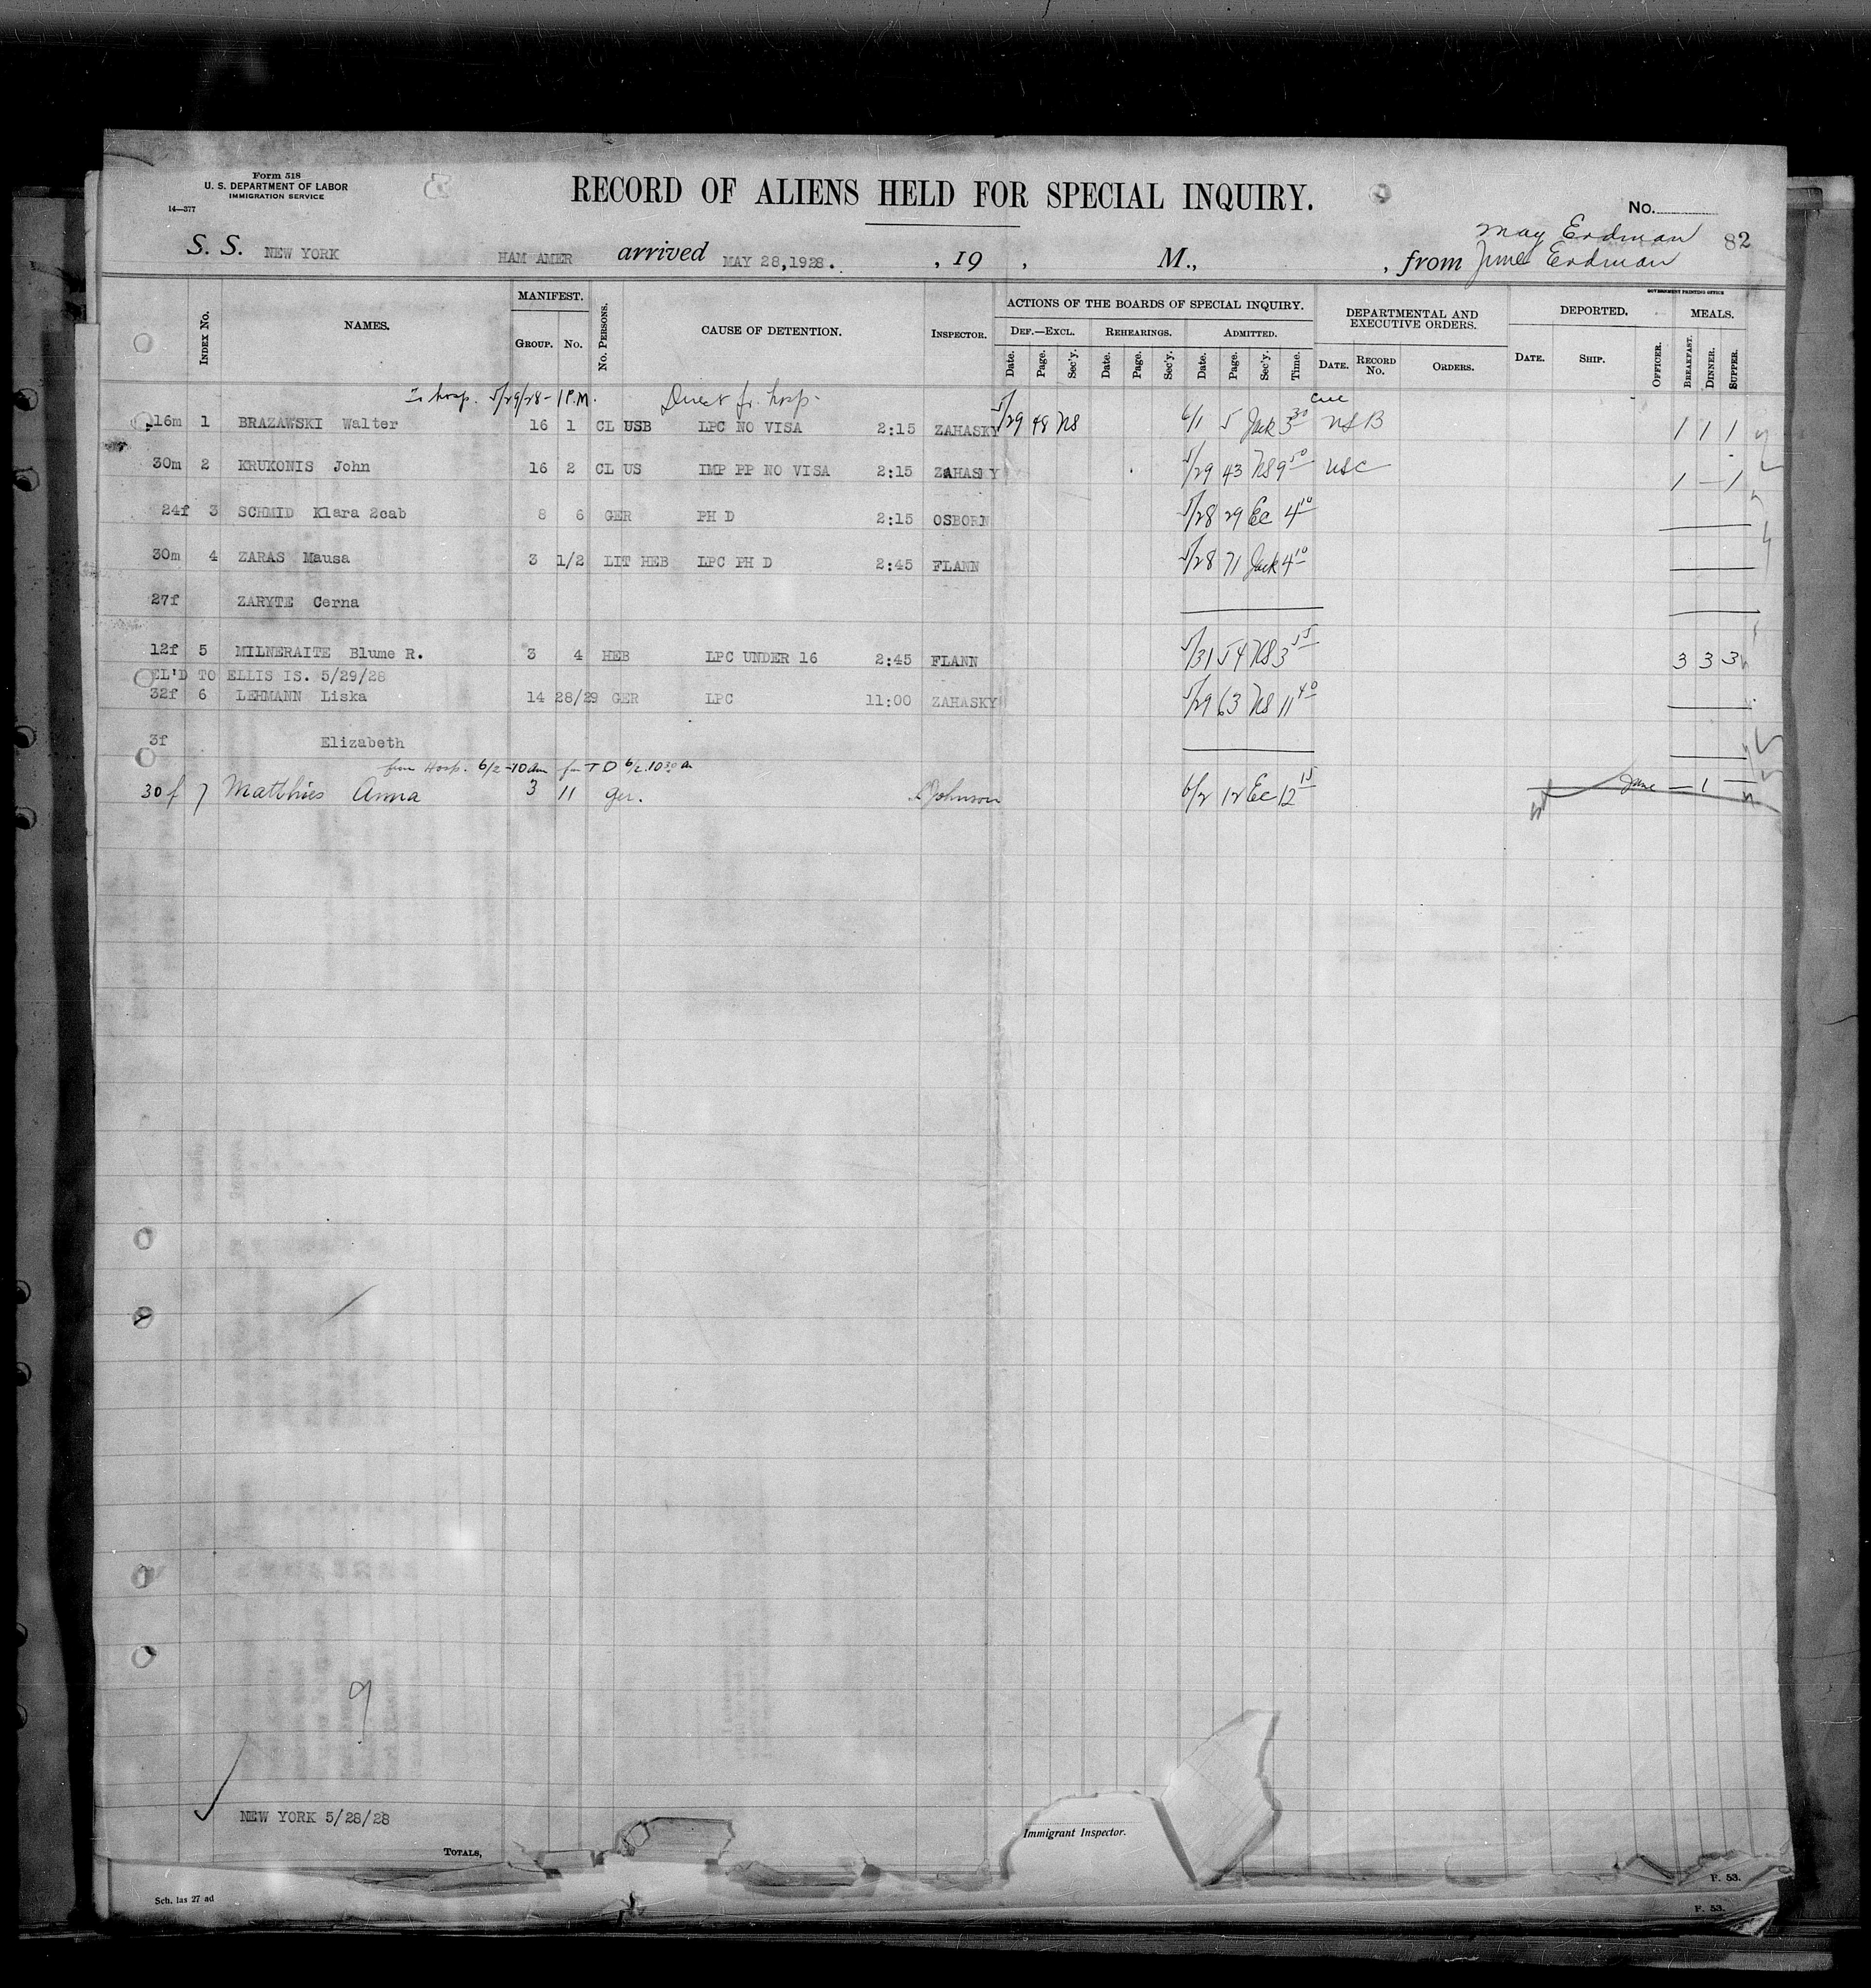 Form 518
U. S. DEPARTMENT OF LABOR
IMMIGRATION SERVICE
14—377
RECORD OF ALIENS HELD FOR SPECIAL INQUIRY.
No.
82
May Erdman
S. S. NEW YORK HAM AMER arrived MAY 28,1928. , 19 , M., , from June Erdman
GOVERNMENT PRINTING OFFICE
INDEX No. NAMES. MANIFEST. GROUP. No. No. PERSONS. CAUSE OF DETENTION. INSPECTOR. ACTIONS OF THE BOARDS OF SPECIAL INQUIRY. DEPARTMENTAL AND EXECUTIVE ORDERS. DEPORTED. MEALS.
DEF.—EXCL. REHEARINGS. ADMITTED.
Date. Page. Sec'y. Date. Page. Sec'y. Date. Page. Sec'y. Time. DATE. RECORD No. ORDERS. DATE. SHIP. OFFICER. BREAKFAST. DINNER. SUPPER.
To hosp. 5/29/28 - 1 P.M. Direct fr. hosp.
16m 1 BRAZAWSKI Walter 16 1 CL USB LPC NO VISA 2:15 ZAHASKY 5/29 48 NS 6/1 5 Jack 3 30 USB 1 1 1
30m 2 KRUKONIS John 16 2 CL US IMP PP NO VISA 2:15 ZAHASKY 5/29 43 NS 9 50 USC 1 — 1
24f 3 SCHMID Klara 2cab 8 6 GER PH D 2:15 OSBORN 5/28 29 EC 4 10
30m 4 ZARAS Mausa 3 1/2 LIT HEB LPC PH D 2:45 FLANN 5/28 71 Jack 4 10
27f ZARYTE Cerna
12f 5 MILNERAITE Blume R. 3 4 HEB LPC UNDER 16 2:45 FLANN 5/31 54 NS 3 55 3 3 3
EL'D TO ELLIS IS. 5/29/28
32f 6 LEHMANN Liska 14 28/29 GER LPC 11:00 ZAHASKY 5/29 63 NS 11 40
3f Elizabeth
from Hosp. 6/2 - 10 am for T D 6/2 10 30 a
30 f 7 Matthies Anna 3 11 Ger. Johnson 6/2 12 EC 12 15 June — 1 —
9
NEW YORK 5/28/28
TOTALS,
Immigrant Inspector.
F. 53.
Sch. las 27 ad
F. 53.